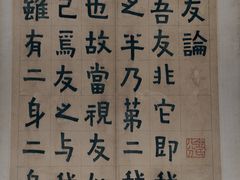 友論
吾友非它即我
之半乃第二我
也故當視友如
己焉友之與我
雖有二身二